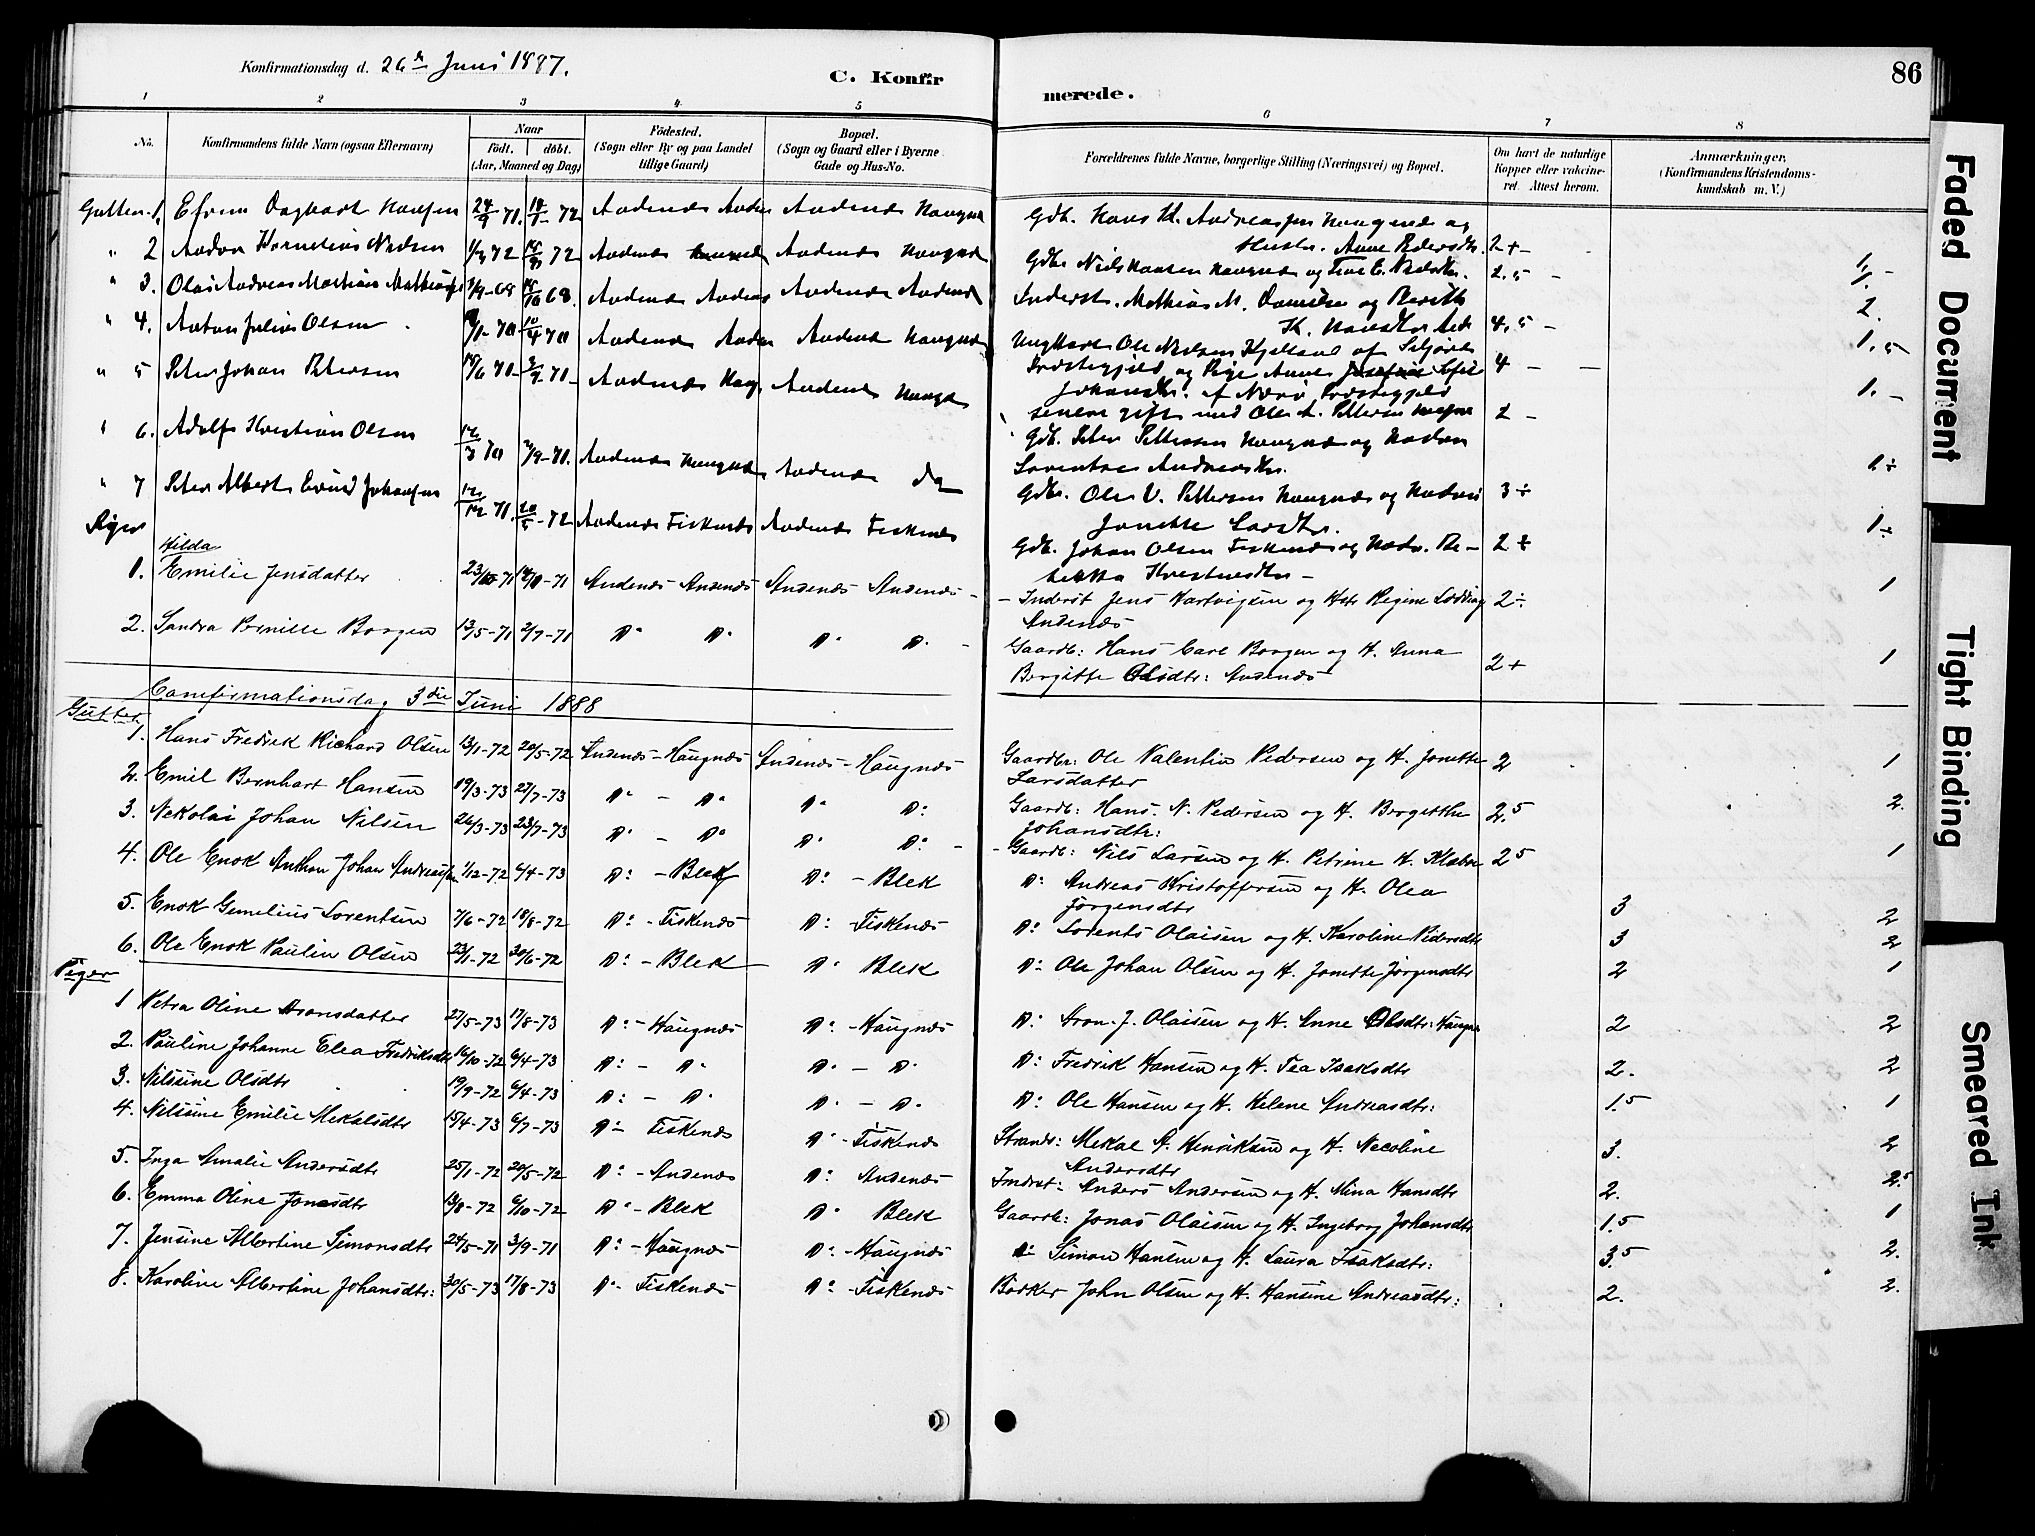 Konfirmationsdag d. 26de Juni 1887.
C. Konfirmerede.
86
1 2 3 4. 5 6 7 8
No. Konfirmandens fulde Navn (ogsaa Efternavn) Naar født. døbt. (Aar, Maaned og Dag) Fødested. (Sogn eller By og paa Landet tillige Gaard) Bopæl. (Sogn og Gaard eller i Byerne Gade og Hus-No. Forældrenes fulde Navne, borgerlige Stilling (Næringsvei) og Bopæl. Om havt de naturlige Kopper eller vakcineret. Attest herom. Anmærkninger, (Konfirmandens Kristendomskundskab m. V.)
Gutter 1. Efrem Dagbart Hansen 71. 72 Andenæs Haugnæs Gdb. Hans K. Andreassen Haugnæs og Hustr. Anne Pedersdtr. 2+
" 2 Kornelius Nielsen 72 72 Andenæs Haugnæs Andenæs Haugnæs Gdbr Niels Hansen Haugnæs og 2.5 -
" 3. Olai Andreas Martinus 68 68. Andenæs Andenæs Andenæs Andenæs Inderst. Mathias M. og Berith K. Hansdtr 4,5 -
" 4. Anton Julius Olsen Andenæs Andenæs Andenæs Haugnæs Ungkarl Ole Nielsen Hjelland af Præstegjeld og Pige Anne Johansdtr. af Nærø Præstegjeld senere gift med Ole A. Pettersen 4 -
" 5 Peter Johan Petersen Andenæs Haug. Andenæs Haugnæs Gdb. Peter Pettersen Haugnæs og Lorentse Andreasdtr. 2 -
" 6. Adolf Kristian Olsen Andenæs Haugnæs Andenæs Do Gdbr. Ole V. Pettersen Haugnæs og Jonette Larsdtr. 3 ÷
" 7 Peter Albert Johansen 71. 72 Andenæs Fiskenæs Andenæs Fiskenæs Gdb. Johan Olsen Fiskenæs og 2 ÷
Piger
1. Hilda Emilie Jensdatter 71 71 Andenæs Andenæs Andenæs Andenæs - Inderst Jens Hartvigsen og Hstr Regine Andenæs 2 ÷ 1
2. Sandra Pernille Borgen 13/5-71 2/7-71 D° D° D° D° - Gaardb: Hans Carl Borgen og H. Anna Bergitte Olsdtr: Andenæs 2+ 1
Comfirmationsdag 3die Juni 1888
Gutter
1. Hans Fredrik Richard Olsen 13/1-72 20/5-72 Andenæs - Haugnæs Andenæs - Haugnæs Gaardbr: Ole Valentin Pedersen og H. Jonette Larsdatter 2 1
2. Emil Bernhart Hansen 19/3-73 27/7-73 D° - D° D° D° Gaardb: Hans. N. Pedersen og H. Bergitthe Johansdtr: 2.5 2.
3. Nekolai Johan Nilsen 26/3-73 23/7-73 D° - D° D° D° - Gaardb: Nils Larsen og H. Petrine H. 2.5 1
4. Ole Enok Anthon Johan Andreassen 1/12-72 6/4-73 D° - Blek D° - Blek D° Andreas Kristoffersen og H. Olea Jørgensdtr 3 2
5. Enok Gemelius Lorentsen 7/6-72 18/8-72 D° - Fiskenæs D° - Fiskenæs D° Lorents Olaisen og H. Karoline Pedersdtr 3 2
6. Ole Enok Paulin Olsen 23/1-72 30/6-72 D° - Blek D° Blek D° Ole Johan Olsen og H. Jonette Jørgensdtr 2 1
Piger
1 Petra Oline Aronsdatter 27/5-73 17/8-73 D° - Haugnæs D° - Haugnæs D° Aron. J. Olaisen og H. Anne Olsdtr: 2 2
2. Pauline Johanne Elea Fredriksdtr 16/10-72 6/4-73 D° - D° D° - D° D° Fredrik Hansen og H. Tea Isaksdtr 2. 2
3. Nilsine Olsdtr 19/9-72 6/4-73 D° - D° D° - D° D° Ole Hansen og H. Helene Andreasdtr: 1.5 1
4. Nilsine Emilie Mekalsdtr 15/4-73 6/7-73 D° Fiskenæs D° - Fiskenæs Strands: Mekal A. Henriksen og H. Necoline Andersdtr 3. 2
5. Inga Amalie Andersdtr 25/1-72 20/5-72 D° - Andenæs D° Andenæs Indrst: Anders Andersen og H. Mina Hansdtr 2. 2.5
6. Emma Oline Jonasdtr 13/8-72 6/10-72 D° - Blek D° Blek Gaardb: Jonas Olaisen og H. Ingeborg Johansdtr 1.5 1
7. Jensine Albertine Simonsdtr 24/5-71 3/9-71 D° - Haugnæs D° - Haugnæs D° Simon Hansen og H. Laura Isaksdtr: 3.5 2.
8. Karoline Albertine Johansdtr: 30/5-73 17/8-73 D° Fiskenæs D° - Fiskenæs Bødker John Olsen og H. Hansine Andreasdtr: 2. 2.
Faded Document
Tight Binding
Smeared Ink